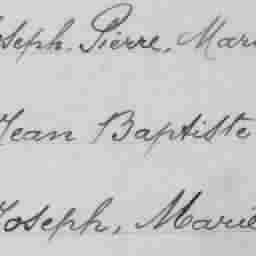 Joseph. Pierre, Mari
Jean Baptiste
Joseph, Marie